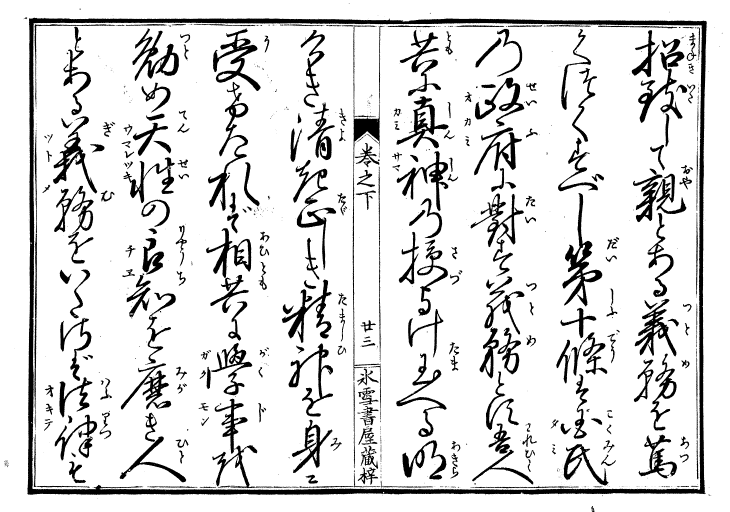 招致して親とある義務を篤
くすべし第十條ハ国民
乃政府に對する義務とす吾人
共に真神乃授与け玉へる明
らき清き正しき精神を身に
受けたれバ相共に学事を
勉め天性の良知を磨き人
とある義務をいたさバ法律も
巻之下
廿三
氷雪書屋蔵梓